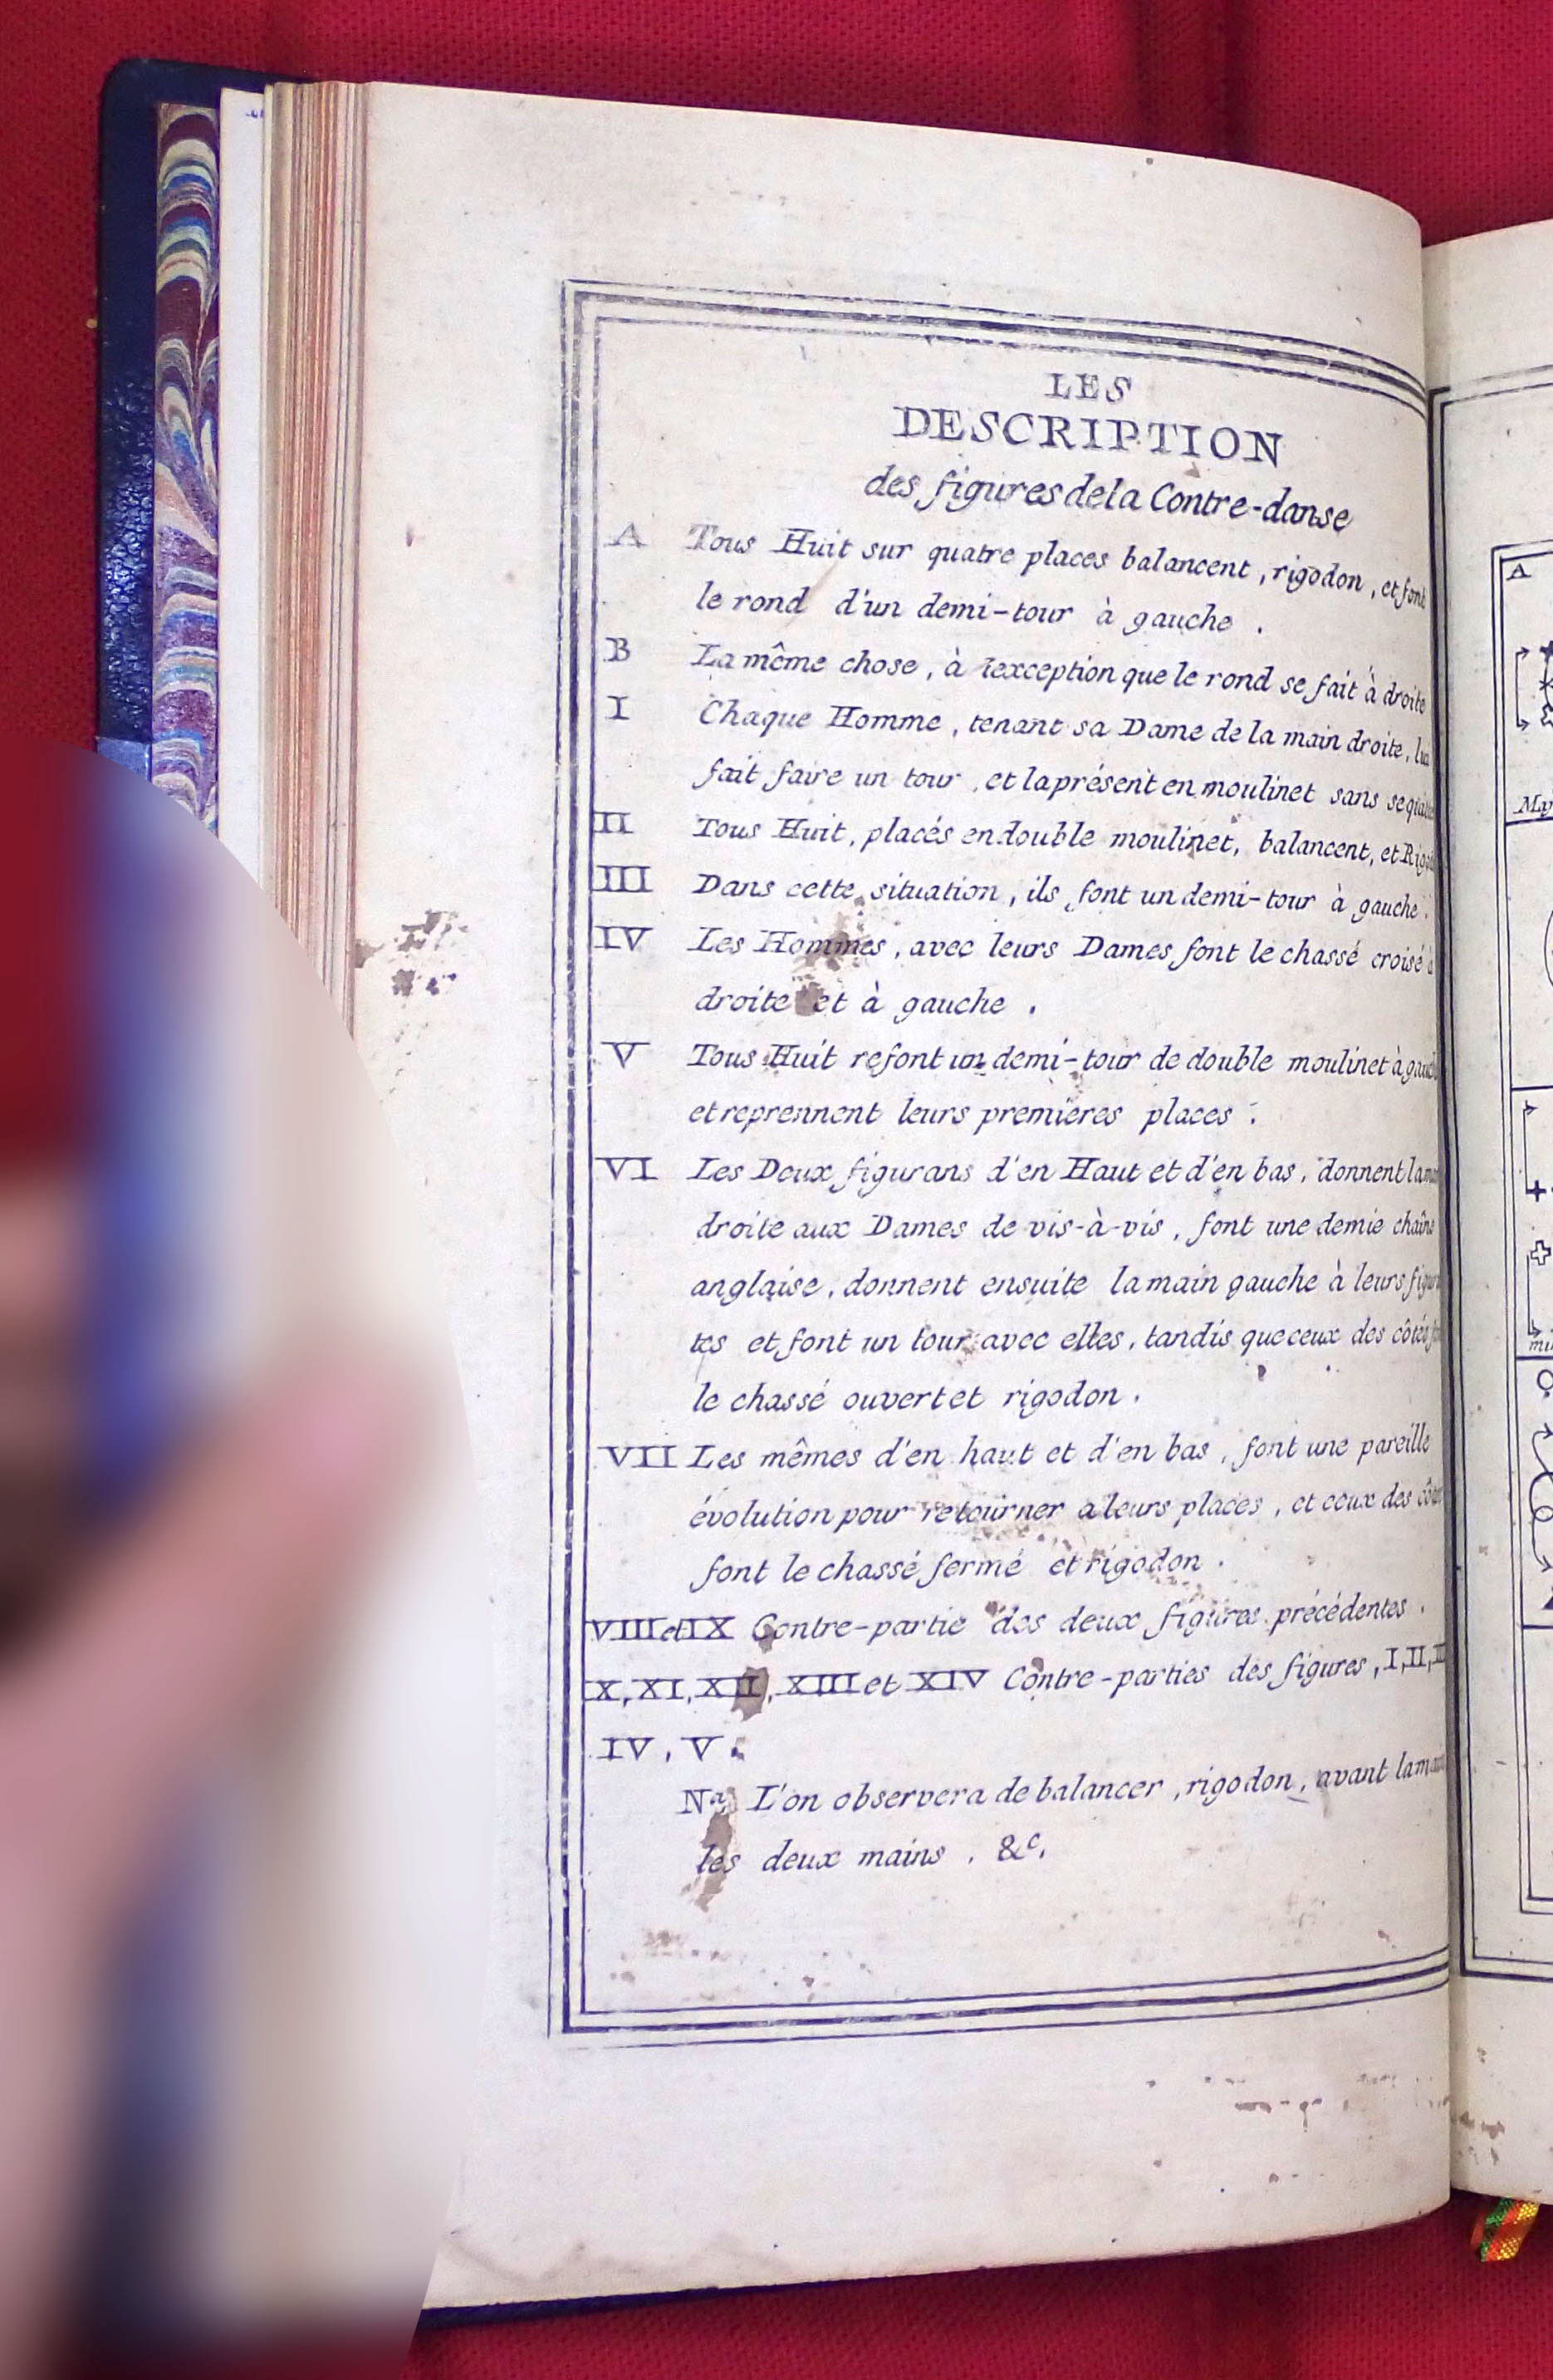 LES
DESCRIPTION
des figures de la Contre-danse
A Tous Huit sur quatre places balancent, rigodon, et font
le rond d'un demi-tour à gauche.
B La même chose, à l'exception que le rond se fait à droite
I Chaque Homme, tenant sa Dame de la main droite, lui
fait faire un tour, et la présent en moulinet sans se
II Tous Huit, placés en double moulinet, balancent, et
III Dans cette situation, ils font un demi-tour à gauche.
IV Les Hommes, avec leurs Dames font le chassé croisé à
droite et à gauche.
V Tous Huit refont un demi-tour de double moulinet à
et reprennent leurs premières places.
VI Les Deux figurans d'en Haut et d'en bas, donnent la
droite aux Dames de vis-à-vis, font une demie chaîne
anglaise, donnent ensuite la main gauche à leurs
tes et font un tour avec elles, tandis que ceux des côtés
le chassé ouvert et rigodon.
VII Les mêmes d'en haut et d'en bas, font une pareille
évolution pour retourner a leurs places, et ceux des
font le chassé fermé et rigodon.
VIII et IX Contre-partie des deux figures précédentes.
X, XI, XII, XIII et XIV Contre-parties des figures, I, II,
IV, V.
Na. L'on observera de balancer, rigodon, avant la
les deux mains, &c.
A